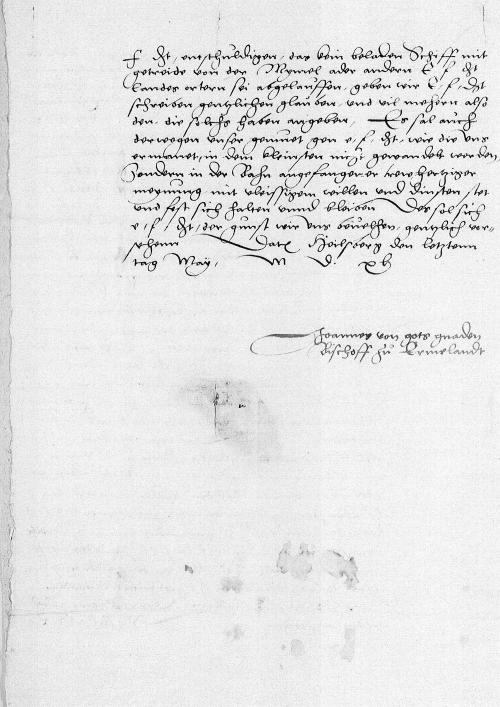 f dt, entschuldigen, das kein beladen Schiff mit
getreide von der Mymel ader andern E f dt
landes ortern sei abgelauffen, geben wir E. f. dt
schreiben gentzlichen glauben, vnd vil mehern also
den, die solchs haben angeben, Es sal auch
derwegen vnser gemuet gen e, f, dt, wie die vns
ermanet, in dem kleinsten nicht gewandelt werden
Sondern in der bahn angefangener reinhertziger
meynung mit vleissigem willen vnd dinsten, stet
vnd fest sich halten vnnd bleiben Des sol sich
e, f, dt, der gunst wir vns beuelhen, gentzlich vor-
sehenn Datum Heilsberg den letztenn
tag May, M D xl
Joannes von gots gnaden
Bischoff zu Ermelandt